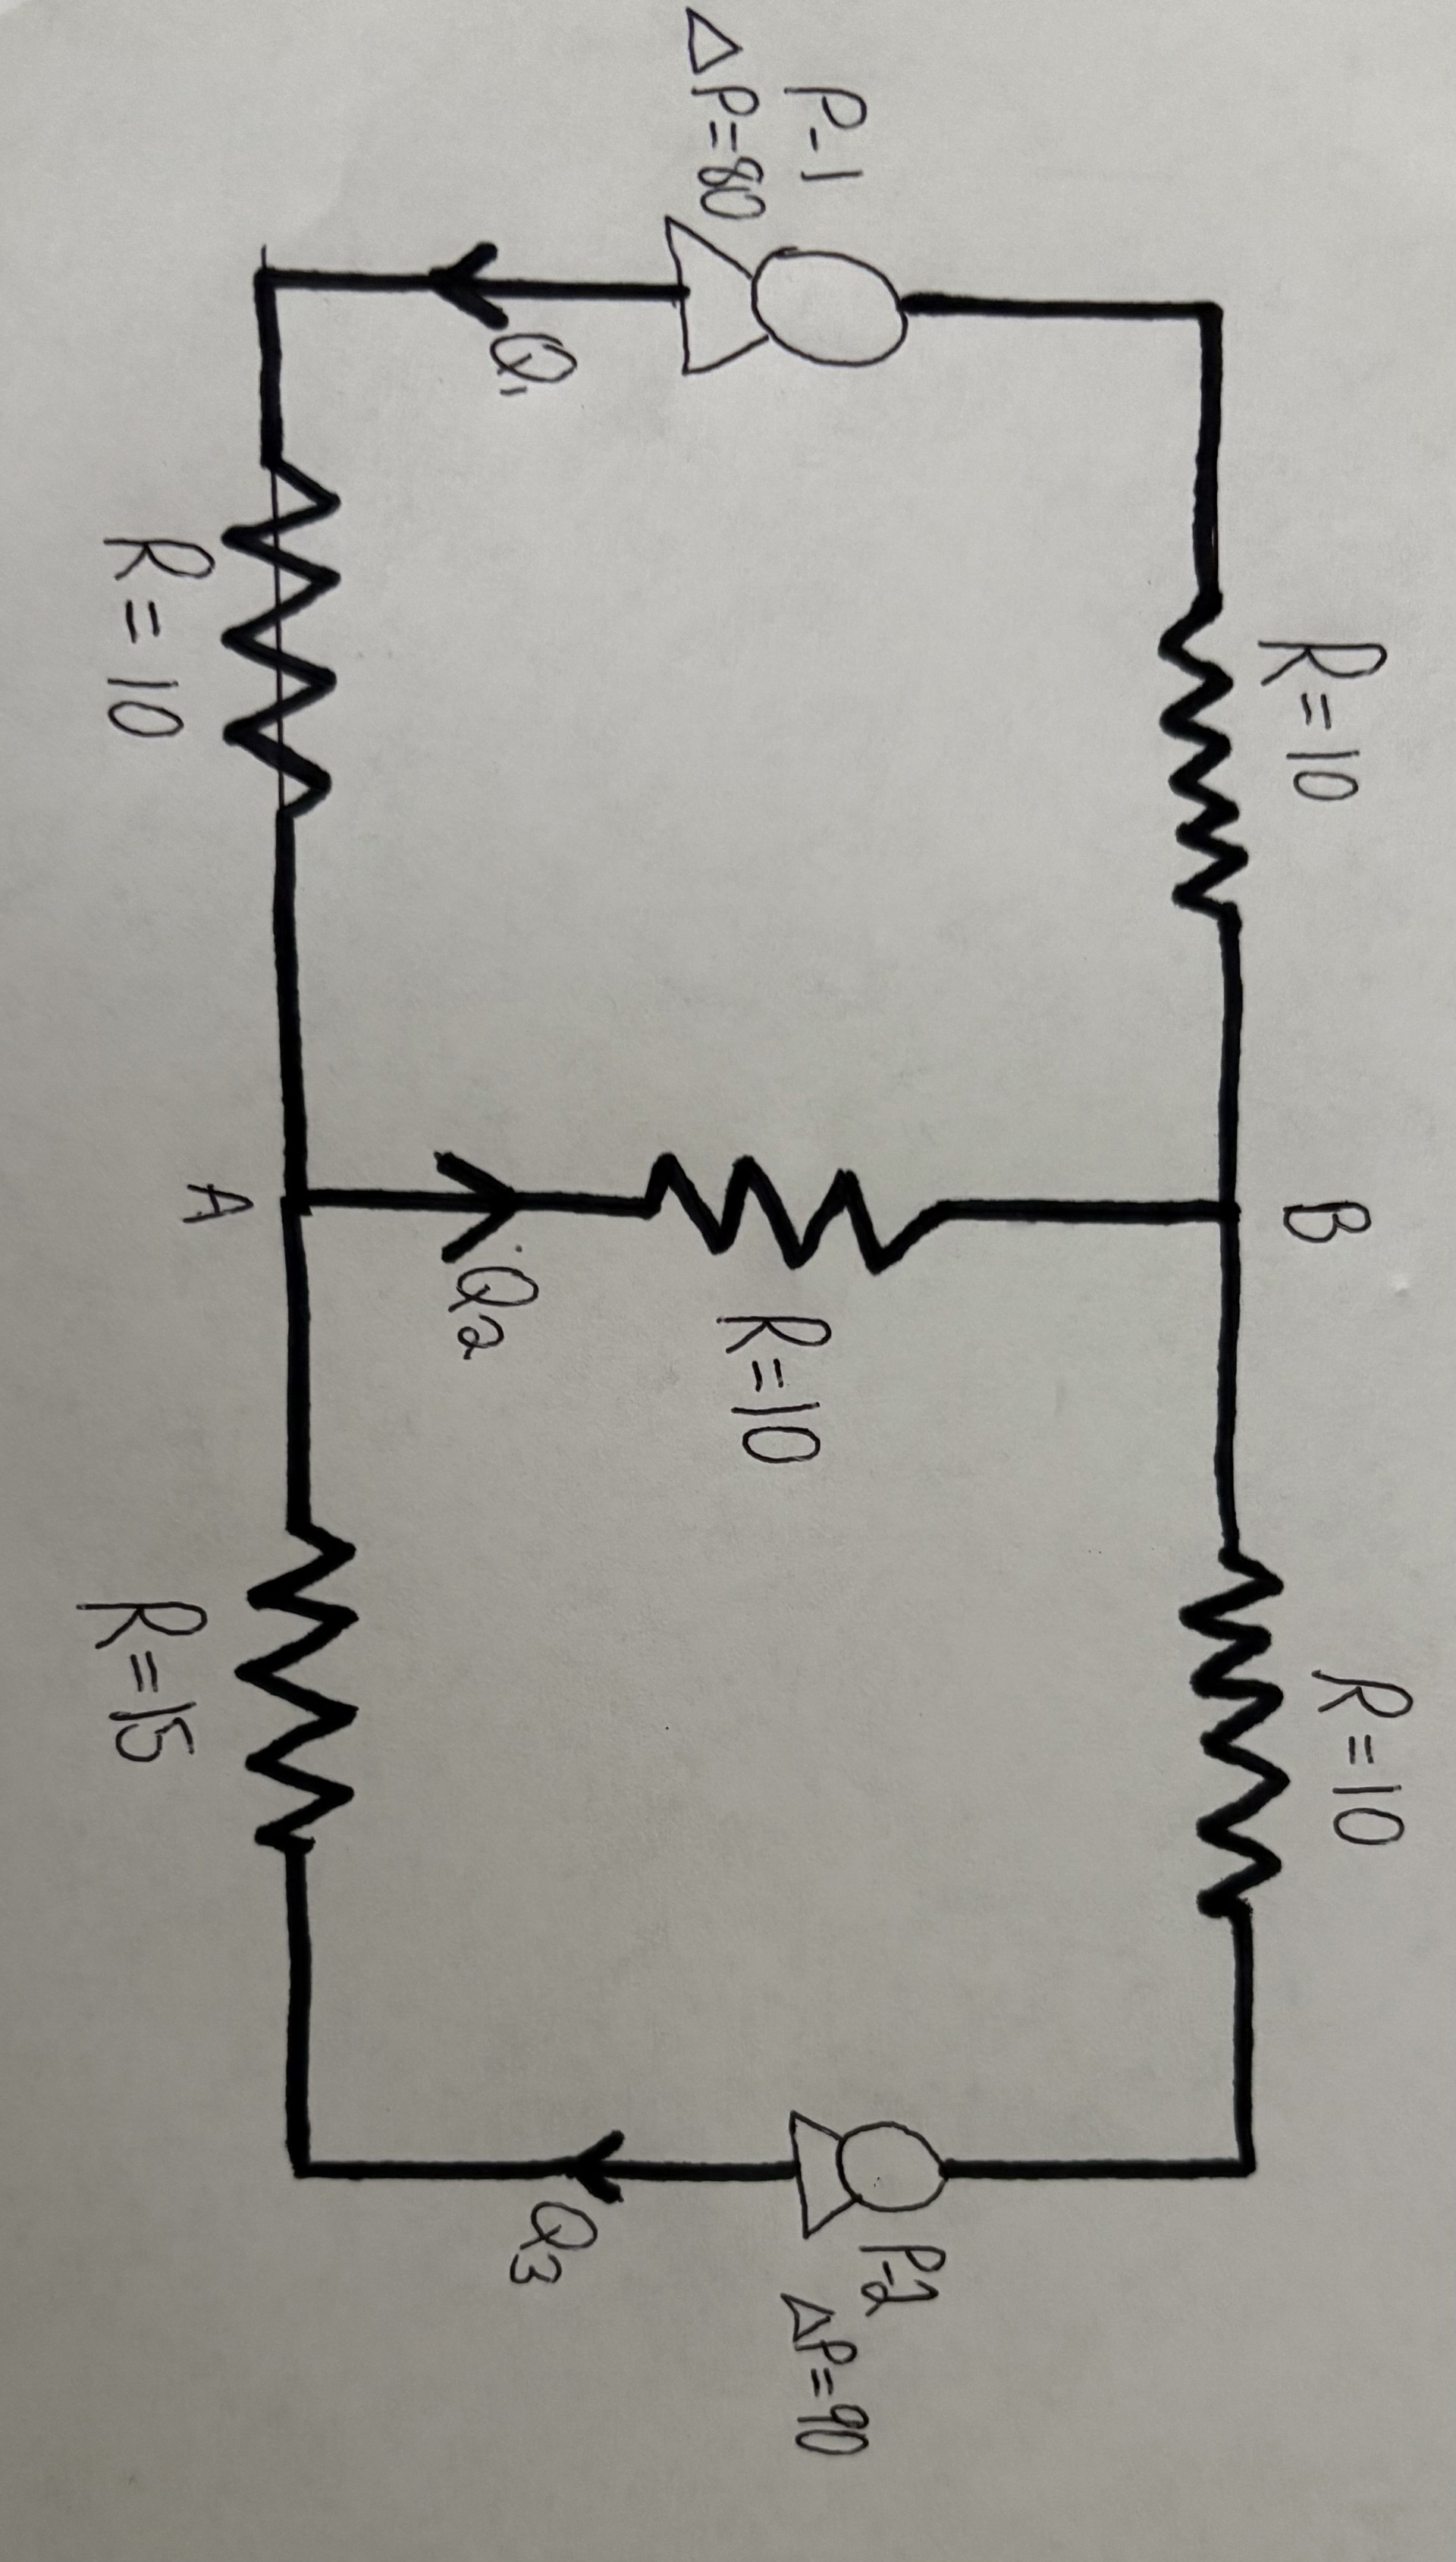 R=10
B
R=10
P-1
ΔP=80
R=10
P-2
ΔP=90
Q1
Q2
Q3
R=10
A
R=15